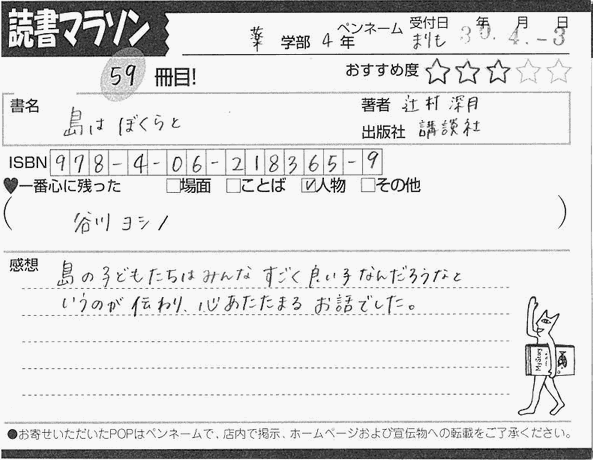 読書マラソン
薬 学部 4年 ペンネーム まりも 受付日 30年 4.月 -3日
59 冊目! おすすめ度 ★★★☆☆
書名 島はぼくらと
著者 辻村深月
出版社 講談社
ISBN 978-4-06-218365-9
♥一番心に残った □場面 □ことば ☑人物 □その他
( 谷川ヨシノ )
感想 島の子どもたちはみんなすごく良い子なんだろうなと
いうのが伝わり、心あたたまるお話でした。
●お寄せいただいたPOPはペンネームで、店内で掲示、ホームページおよび宣伝物への転載をご了承ください。